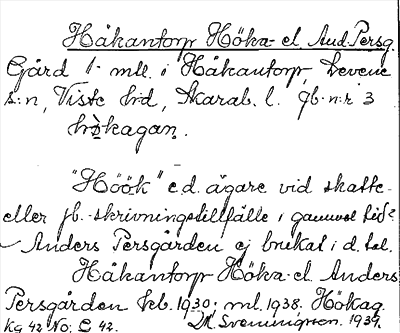 Håkantorp Höka- el. And. Persg.
Gård 1 mtl. i Håkantorp, Levene
s:n, Viste hd, Skarab. l. jb. n:r 3
hø̀kagan.
"Höök" e.d. ägare vid skatte-
eller jb.-skrivningstillfälle i gammal tid?
Anders Persgården ej brukat i d. tal.
Håkantorp Höka- el. Anders
Persgården keb. 1930; ml. 1938. Hökag.
Kg 42 No. L 42. M. Svenningson. 1939.